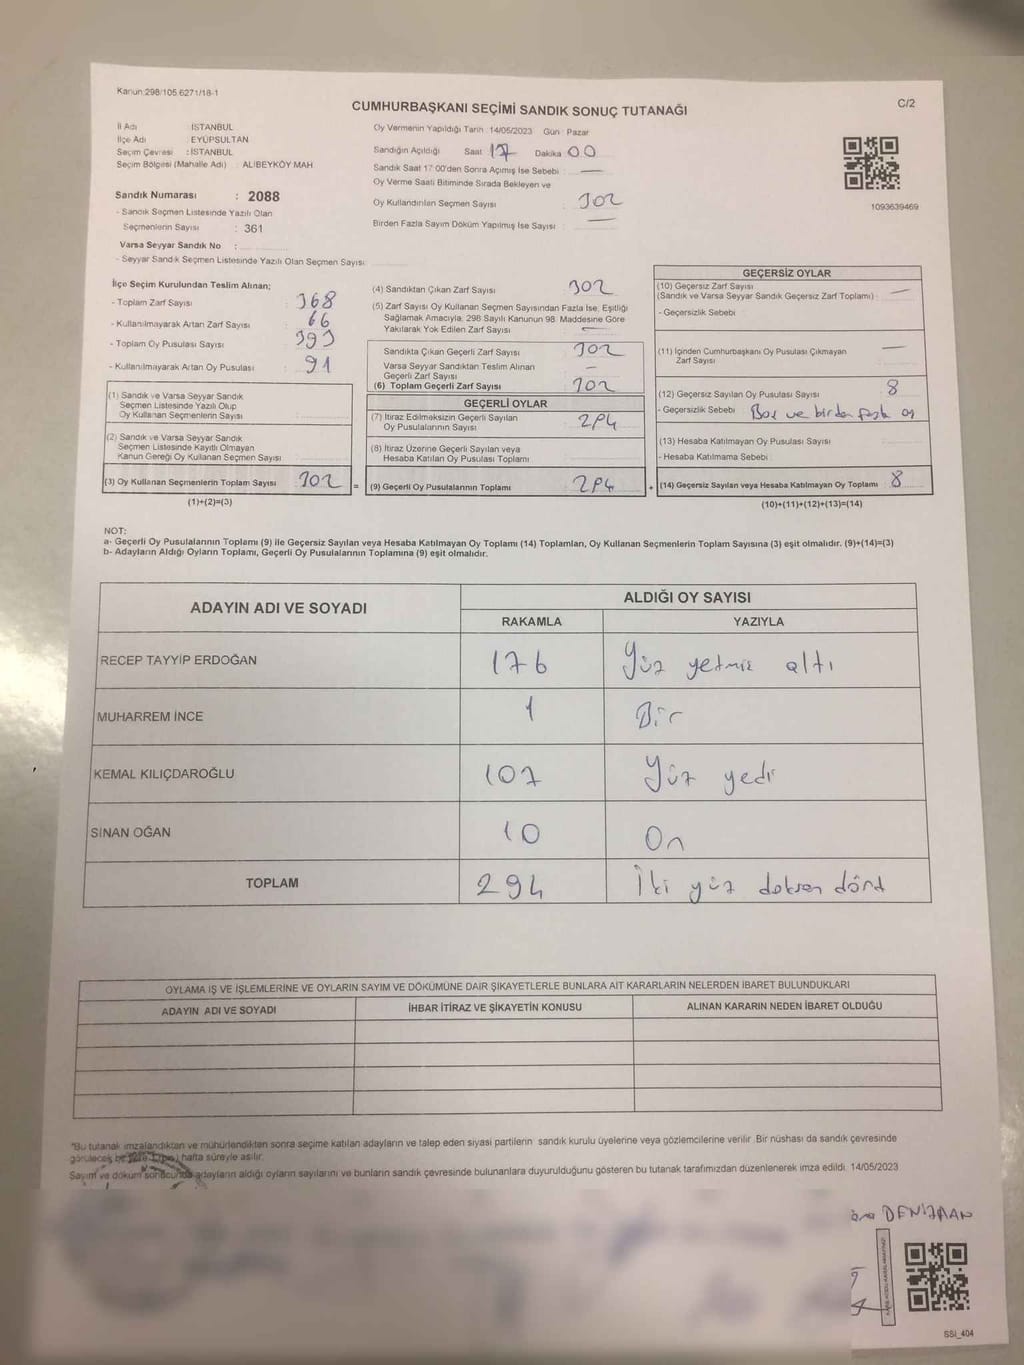 Kanun:298/105,6271/18-1
C/2
CUMHURBAŞKANI SEÇİMİ SANDIK SONUÇ TUTANAĞI
İl Adı : İSTANBUL
İlçe Adı : EYÜPSULTAN
Seçim Çevresi : İSTANBUL
Seçim Bölgesi (Mahalle Adı) : ALİBEYKÖY MAH
Sandık Numarası : 2088
- Sandık Seçmen Listesinde Yazılı Olan
Seçmenlerin Sayısı : 361
Varsa Seyyar Sandık No :
- Seyyar Sandık Seçmen Listesinde Yazılı Olan Seçmen Sayısı:
Oy Vermenin Yapıldığı Tarih : 14/05/2023 Gün : Pazar
Sandığın Açıldığı Saat 17 Dakika 00
Sandık Saat 17:00'den Sonra Açılmış İse Sebebi : —
Oy Verme Saati Bitiminde Sırada Bekleyen ve
Oy Kullandırılan Seçmen Sayısı : 302
Birden Fazla Sayım Döküm Yapılmış İse Sayısı : —
1093639469
İlçe Seçim Kurulundan Teslim Alınan;
- Toplam Zarf Sayısı : 368
- Kullanılmayarak Artan Zarf Sayısı : 66
- Toplam Oy Pusulası Sayısı : 393
- Kullanılmayarak Artan Oy Pusulası : 91
(1) Sandık ve Varsa Seyyar Sandık
Seçmen Listesinde Yazılı Olup
Oy Kullanan Seçmenlerin Sayısı
(2) Sandık ve Varsa Seyyar Sandık
Seçmen Listesinde Kayıtlı Olmayan
Kanun Gereği Oy Kullanan Seçmen Sayısı
(3) Oy Kullanan Seçmenlerin Toplam Sayısı 302
(1)+(2)=(3)
(4) Sandıktan Çıkan Zarf Sayısı : 302
(5) Zarf Sayısı Oy Kullanan Seçmen Sayısından Fazla İse, Eşitliği
Sağlamak Amacıyla, 298 Sayılı Kanunun 98. Maddesine Göre
Yakılarak Yok Edilen Zarf Sayısı : —
Sandıkta Çıkan Geçerli Zarf Sayısı : 302
Varsa Seyyar Sandıktan Teslim Alınan
Geçerli Zarf Sayısı : —
(6) Toplam Geçerli Zarf Sayısı : 302
GEÇERLİ OYLAR
(7) İtiraz Edilmeksizin Geçerli Sayılan
Oy Pusulalarının Sayısı : 294
(8) İtiraz Üzerine Geçerli Sayılan veya
Hesaba Katılan Oy Pusulası Toplamı :
= (9) Geçerli Oy Pusulalarının Toplamı : 294
GEÇERSİZ OYLAR
(10) Geçersiz Zarf Sayısı
(Sandık ve Varsa Seyyar Sandık Geçersiz Zarf Toplamı) : —
- Geçersizlik Sebebi :
(11) İçinden Cumhurbaşkanı Oy Pusulası Çıkmayan
Zarf Sayısı : —
(12) Geçersiz Sayılan Oy Pusulası Sayısı : 8
- Geçersizlik Sebebi : Boş ve birden fazla oy
(13) Hesaba Katılmayan Oy Pusulası Sayısı :
- Hesaba Katılmama Sebebi :
+ (14) Geçersiz Sayılan veya Hesaba Katılmayan Oy Toplamı : 8
(10)+(11)+(12)+(13)=(14)
NOT:
a- Geçerli Oy Pusulalarının Toplamı (9) ile Geçersiz Sayılan veya Hesaba Katılmayan Oy Toplamı (14) Toplamları, Oy Kullanan Seçmenlerin Toplam Sayısına (3) eşit olmalıdır. (9)+(14)=(3)
b- Adayların Aldığı Oyların Toplamı, Geçerli Oy Pusulalarının Toplamına (9) eşit olmalıdır.
ADAYIN ADI VE SOYADI
ALDIĞI OY SAYISI
RAKAMLA YAZIYLA
RECEP TAYYİP ERDOĞAN 176 Yüz yetmiş altı
MUHARREM İNCE 1 Bir
KEMAL KILIÇDAROĞLU 107 Yüz yedi
SİNAN OĞAN 10 On
TOPLAM 294 İki yüz doksan dört
OYLAMA İŞ VE İŞLEMLERİNE VE OYLARIN SAYIM VE DÖKÜMÜNE DAİR ŞİKAYETLERLE BUNLARA AİT KARARLARIN NELERDEN İBARET BULUNDUKLARI
ADAYIN ADI VE SOYADI İHBAR İTİRAZ VE ŞİKAYETİN KONUSU ALINAN KARARIN NEDEN İBARET OLDUĞU
*Bu tutanak imzalandıktan ve mühürlendikten sonra seçime katılan adayların ve talep eden siyasi partilerin sandık kurulu üyelerine veya gözlemcilerine verilir. Bir nüshası da sandık çevresinde
görülecek bir yere 1 (bir) hafta süreyle asılır.
Sayım ve döküm sonucunda adayların aldığı oyların sayılarını ve bunların sandık çevresinde bulunanlara duyurulduğunu gösteren bu tutanak tarafımızdan düzenlenerek imza edildi. 14/05/2023
SSİ_404